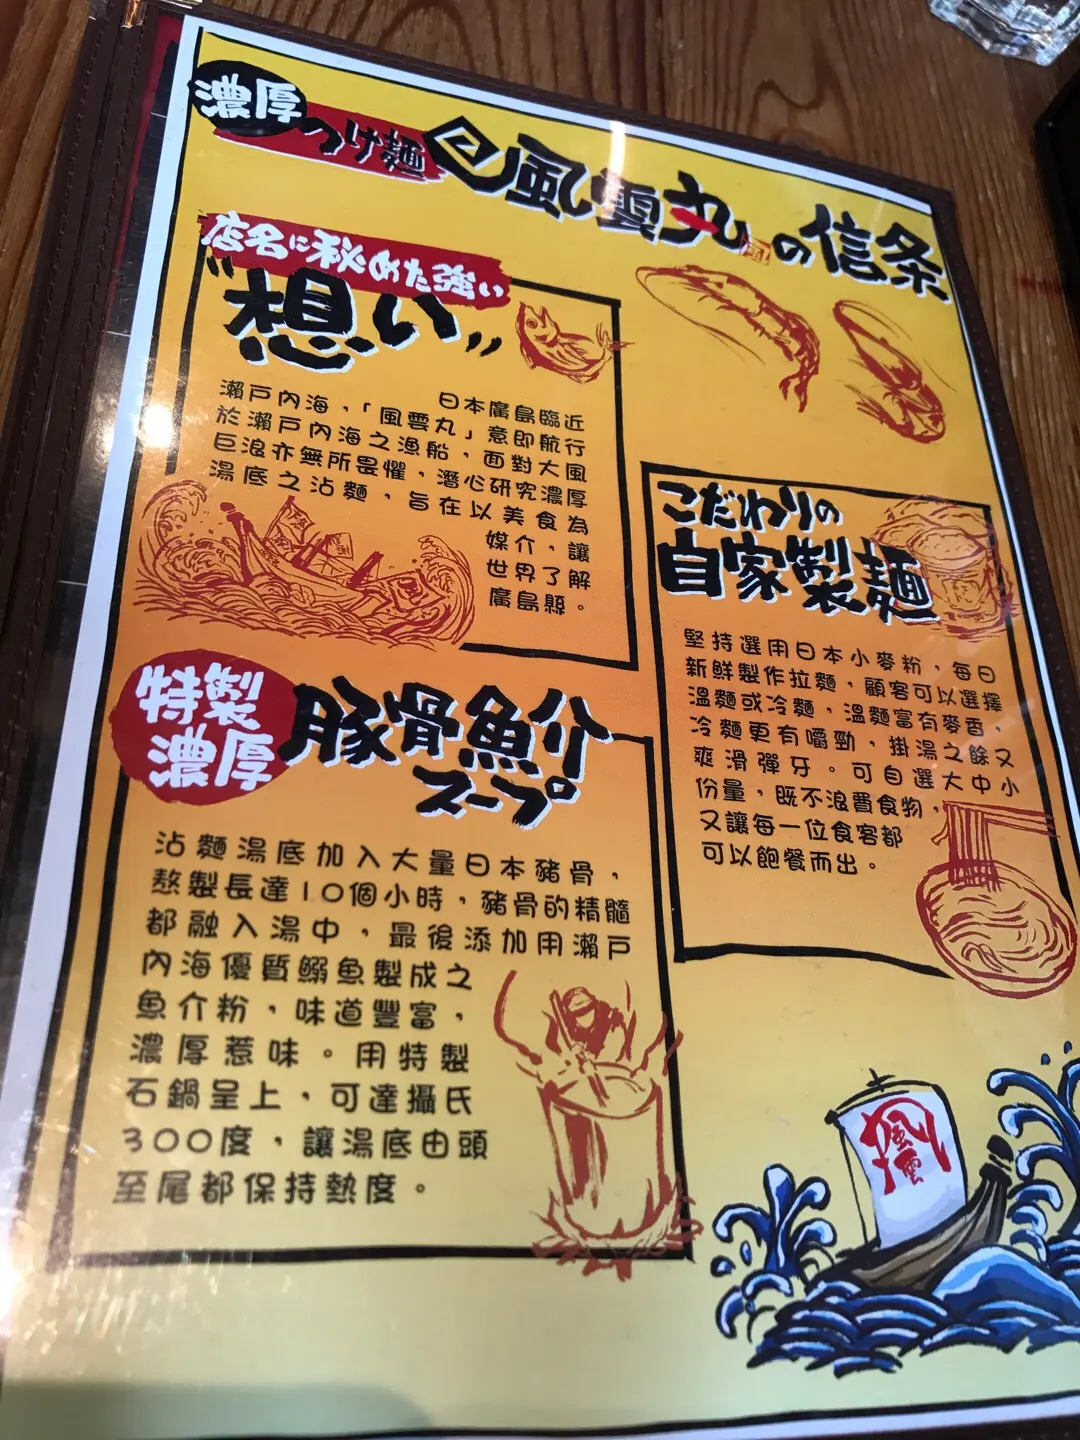 濃厚
つけ麺
風雲丸の信条
店名に秘めた強い
"想い"
日本廣島臨近
瀨戸內海，「風雲丸」意即航行
於瀨戸內海之漁船，面對大風
巨浪亦無所畏懼，潛心研究濃厚
湯底之沾麵，旨在以美食為
媒介，讓
世界了解
廣島縣。
こだわりの
自家製麺
堅持選用日本小麥粉，每日
新鮮製作拉麵，顧客可以選擇
溫麵或冷麵，溫麵富有麥香，
冷麵更有嚼勁，掛湯之餘又
爽滑彈牙。可自選大中小
份量，既不浪費食物，
又讓每一位食客都
可以飽餐而出。
特製
濃厚
豚骨魚介
スープ
沾麵湯底加入大量日本豬骨，
熬製長達10個小時，豬骨的精髓
都融入湯中，最後添加用瀨戸
內海優質鰯魚製成之
魚介粉，味道豐富，
濃厚惹味。用特製
石鍋呈上，可達攝氏
300度，讓湯底由頭
至尾都保持熱度。
風雲